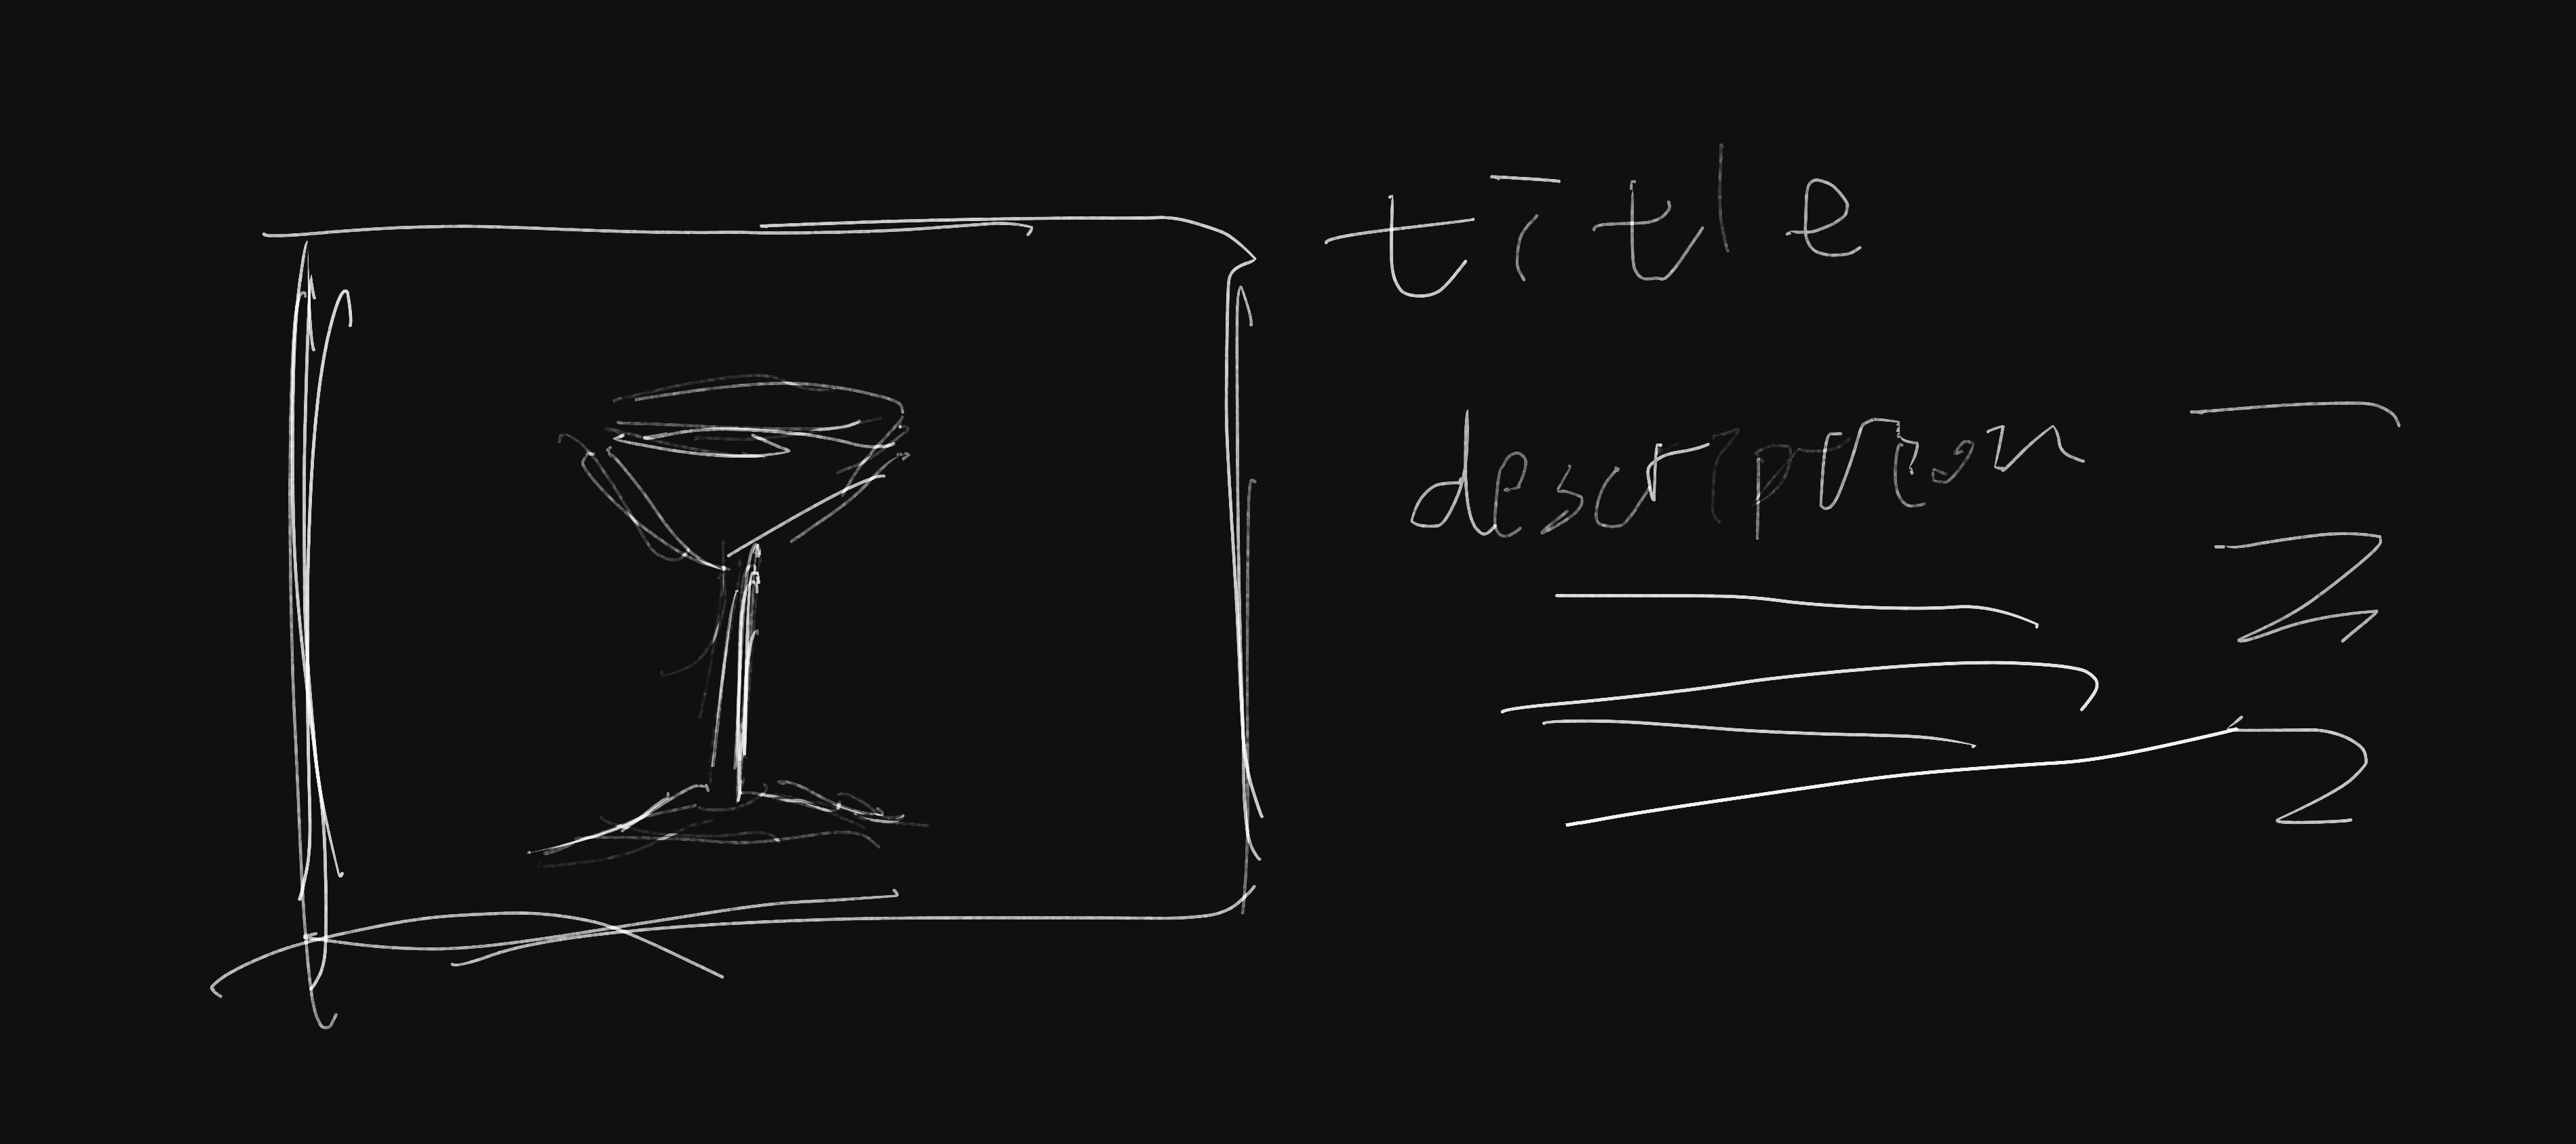 title
description